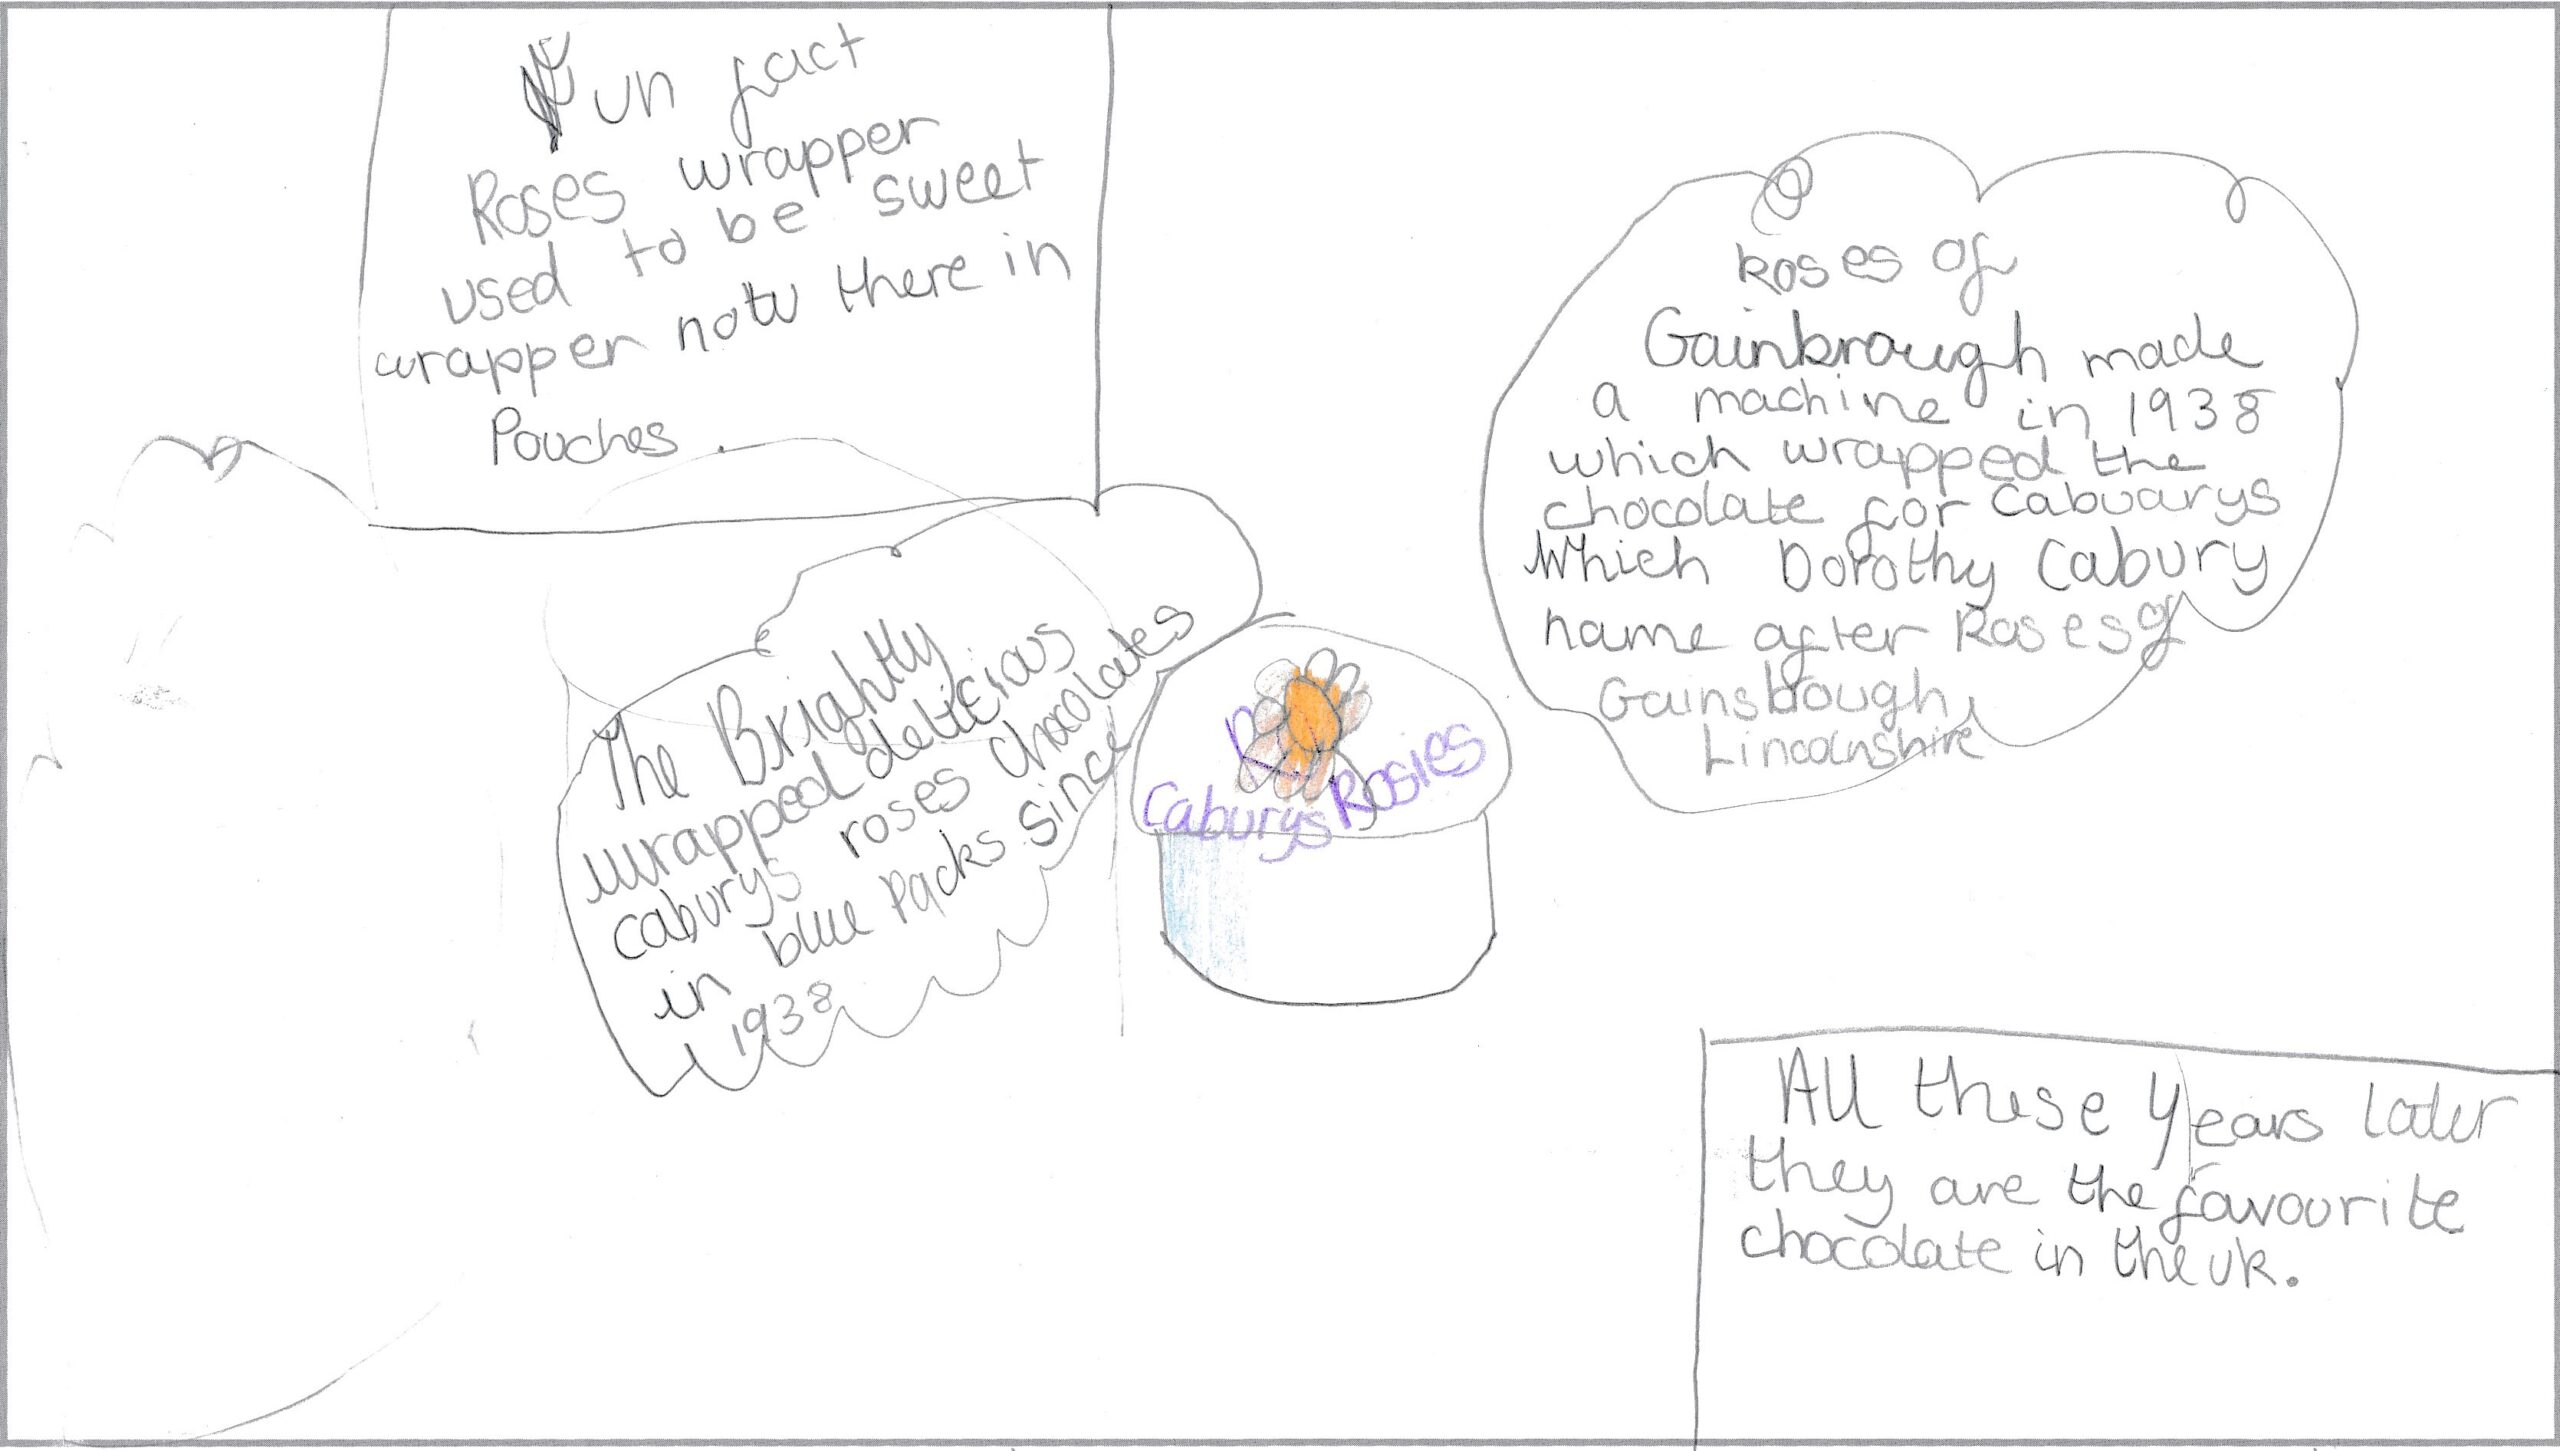 Fun fact
Roses wrapper
used to be sweet
wrapper now there in
Pouches.
Roses of
Gainbrough made
a machine in 1938
which wrapped the
chocolate for Cabuarys
Which Dorothy Cabury
name after Roses of
Gainsbough
Lincolnshire
The Brightly
wrapped delicious
caburys roses chocolates
in blue Packs since
1938
Caburys Rosies
All these years later
they are the favourite
chocolate in the uk.